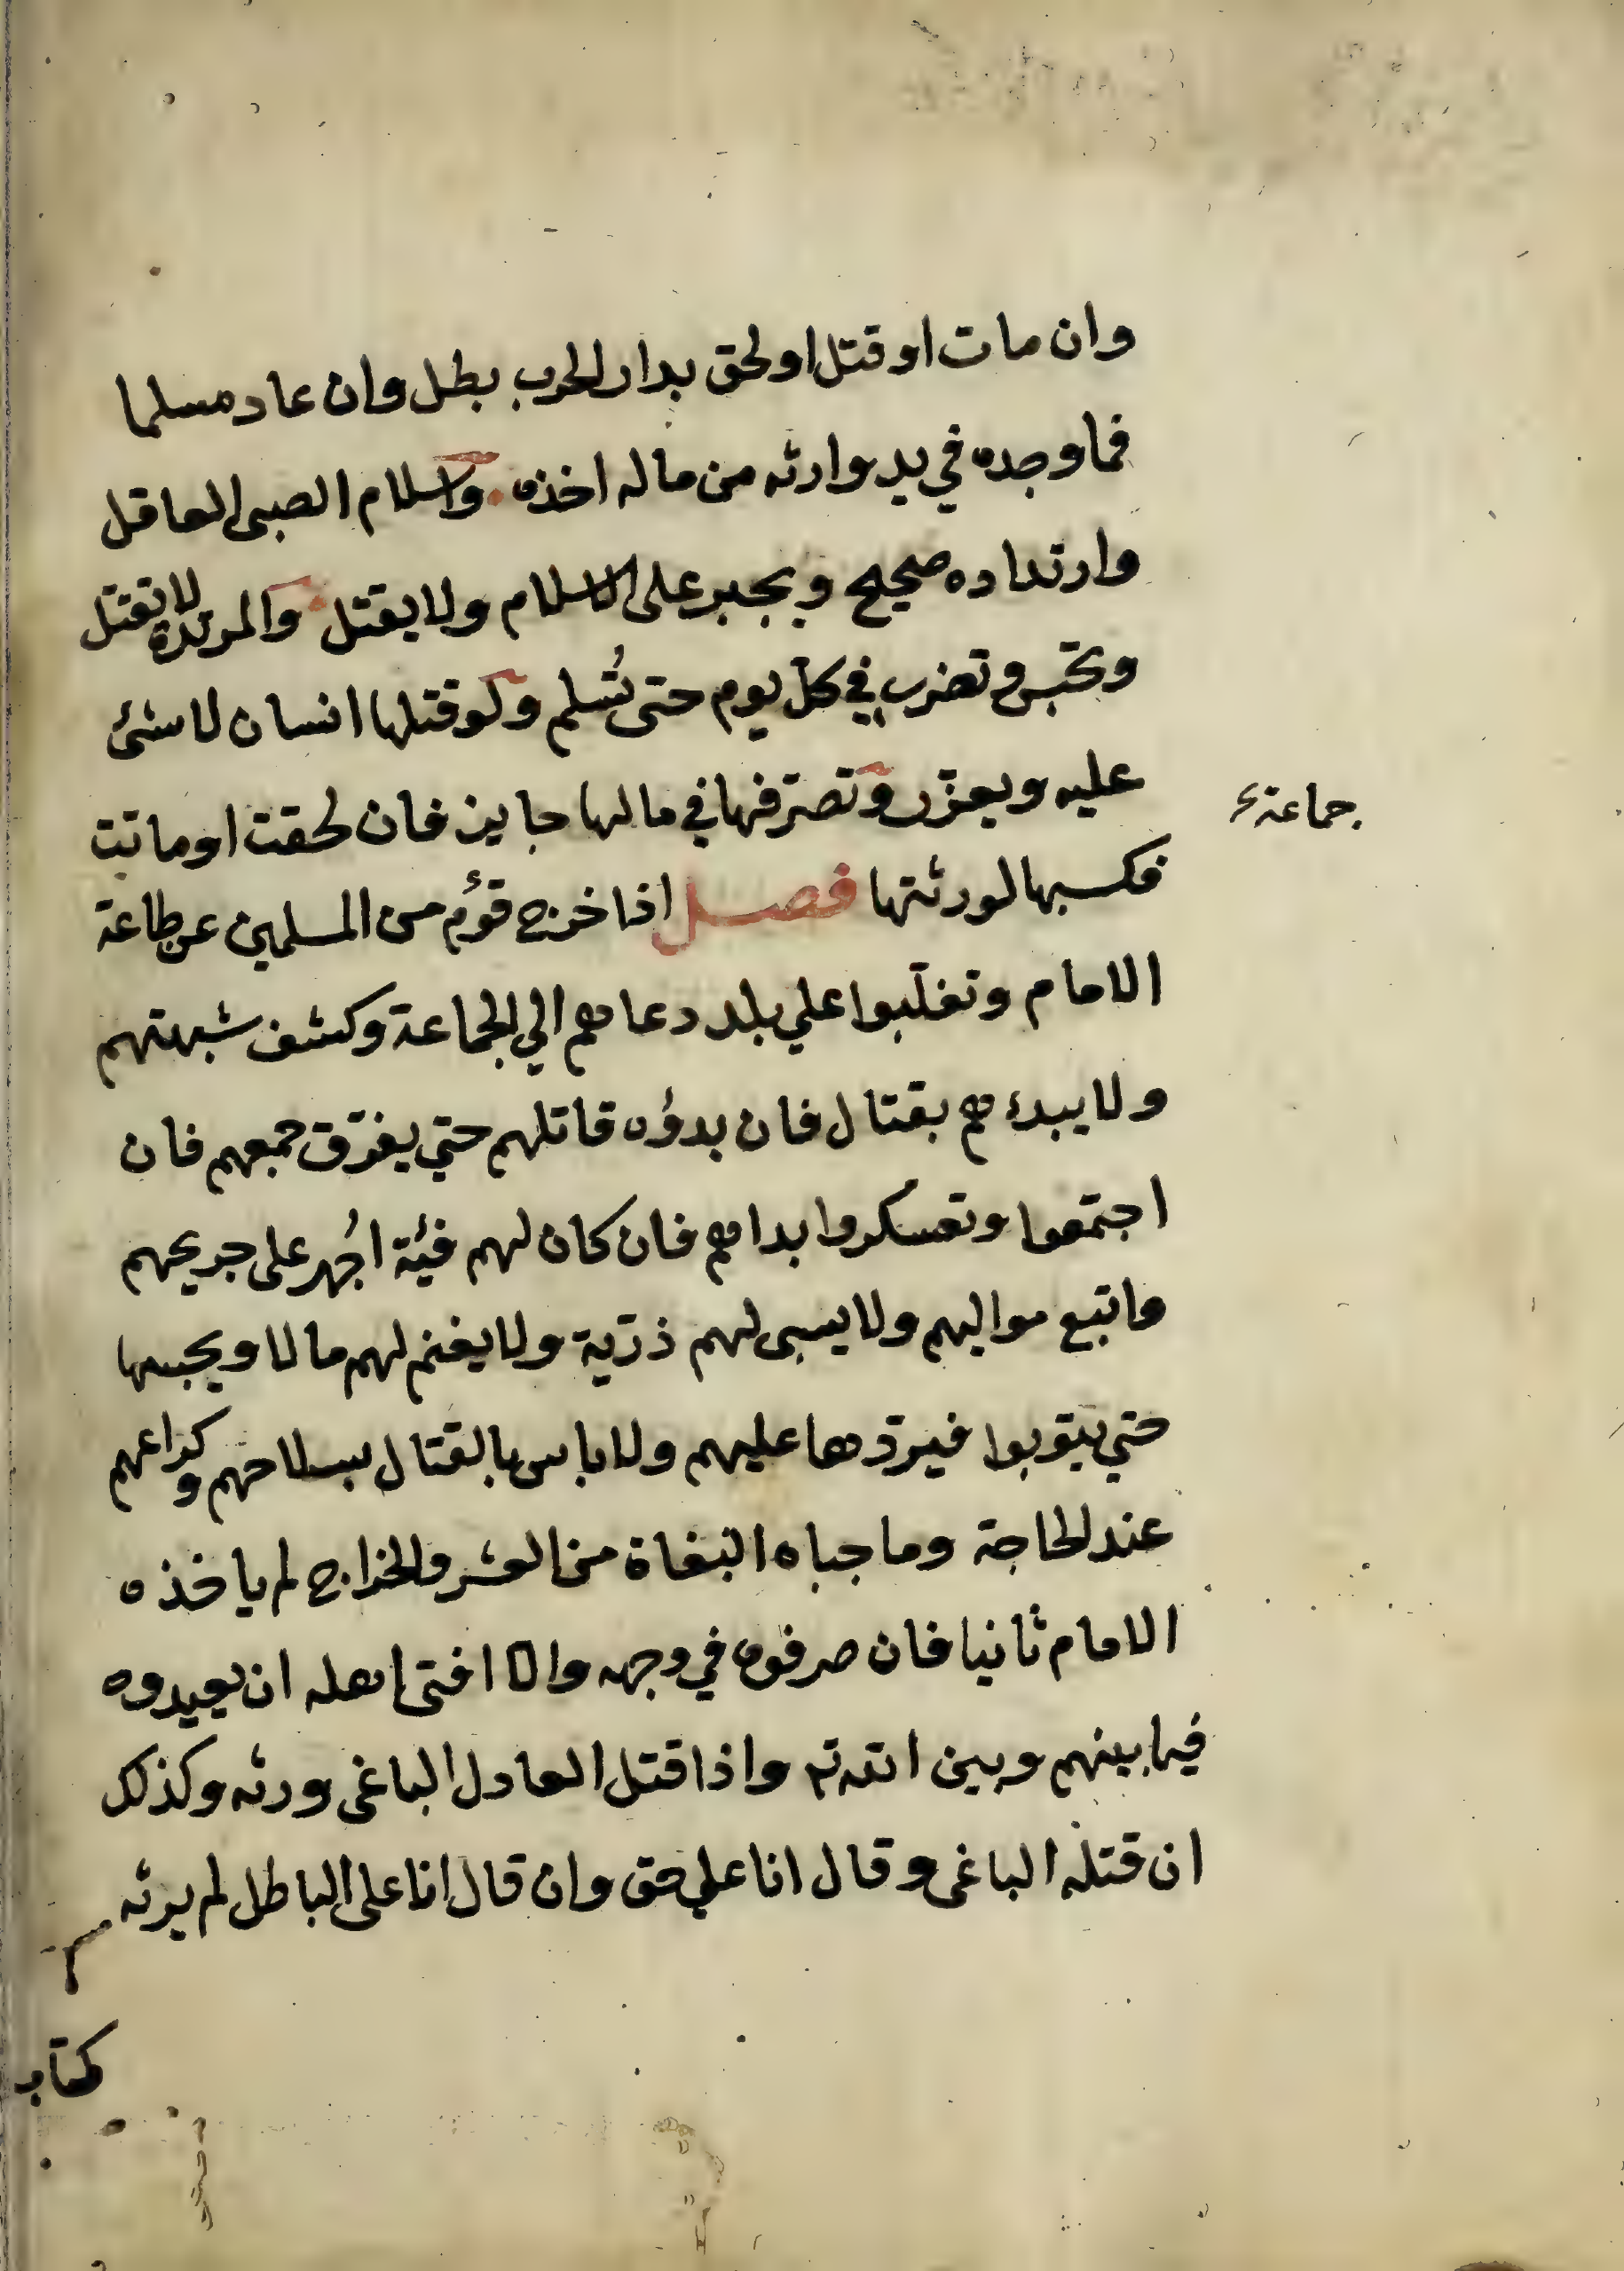 وان مات او قتل او لحق بدار الحرب بطل وان عاد مسلما
فما وجده في يد وارثه من ماله اخذه واسلام الصبى العاقل
وارتداده صحيح ويجبر على الاسلام ولا يقتل والمرتدة لا تقتل
وتحبس وتضرب في كل يوم حتى تُسلم ولو قتلها انسان لا شئ
عليه ويعزّر وتصرّفها في مالها جايز فان لحقت او ماتت
فكسبها لورثتها فصل اذا خرج قوم من المسلمين عن طاعة
جماعة
الامام وتغلّبوا علي بلد دعاهم الي الجماعة وكشف شبهتهم
ولا يبدءهم بقتال فان بدؤه قاتلهم حتي يفرّق جمعهم فان
اجتمعوا وتعسكروا بداهم فان كان لهم فيئة اُجهر على جريحهم
واتبع مواليهم ولا يسبى لهم ذرّية ولا يغنم لهم مالا ويحبسها
حتي يتوبوا فيردّها عليهم ولا باس بالقتال بسلاحهم وكراعهم
عند الحاجة وما جباه البغاة من العشر والخراج لم ياخذه
الامام ثانيا فان صرفوه في وجهه والا افتى اهله ان يعيدوه
فيما بينهم وبين الله تع واذا قتل العادل الباغى ورثه وكذلك
ان قتله الباغى وقال انا علي حق وان قال انا على الباطل لم يرثه
كتاب